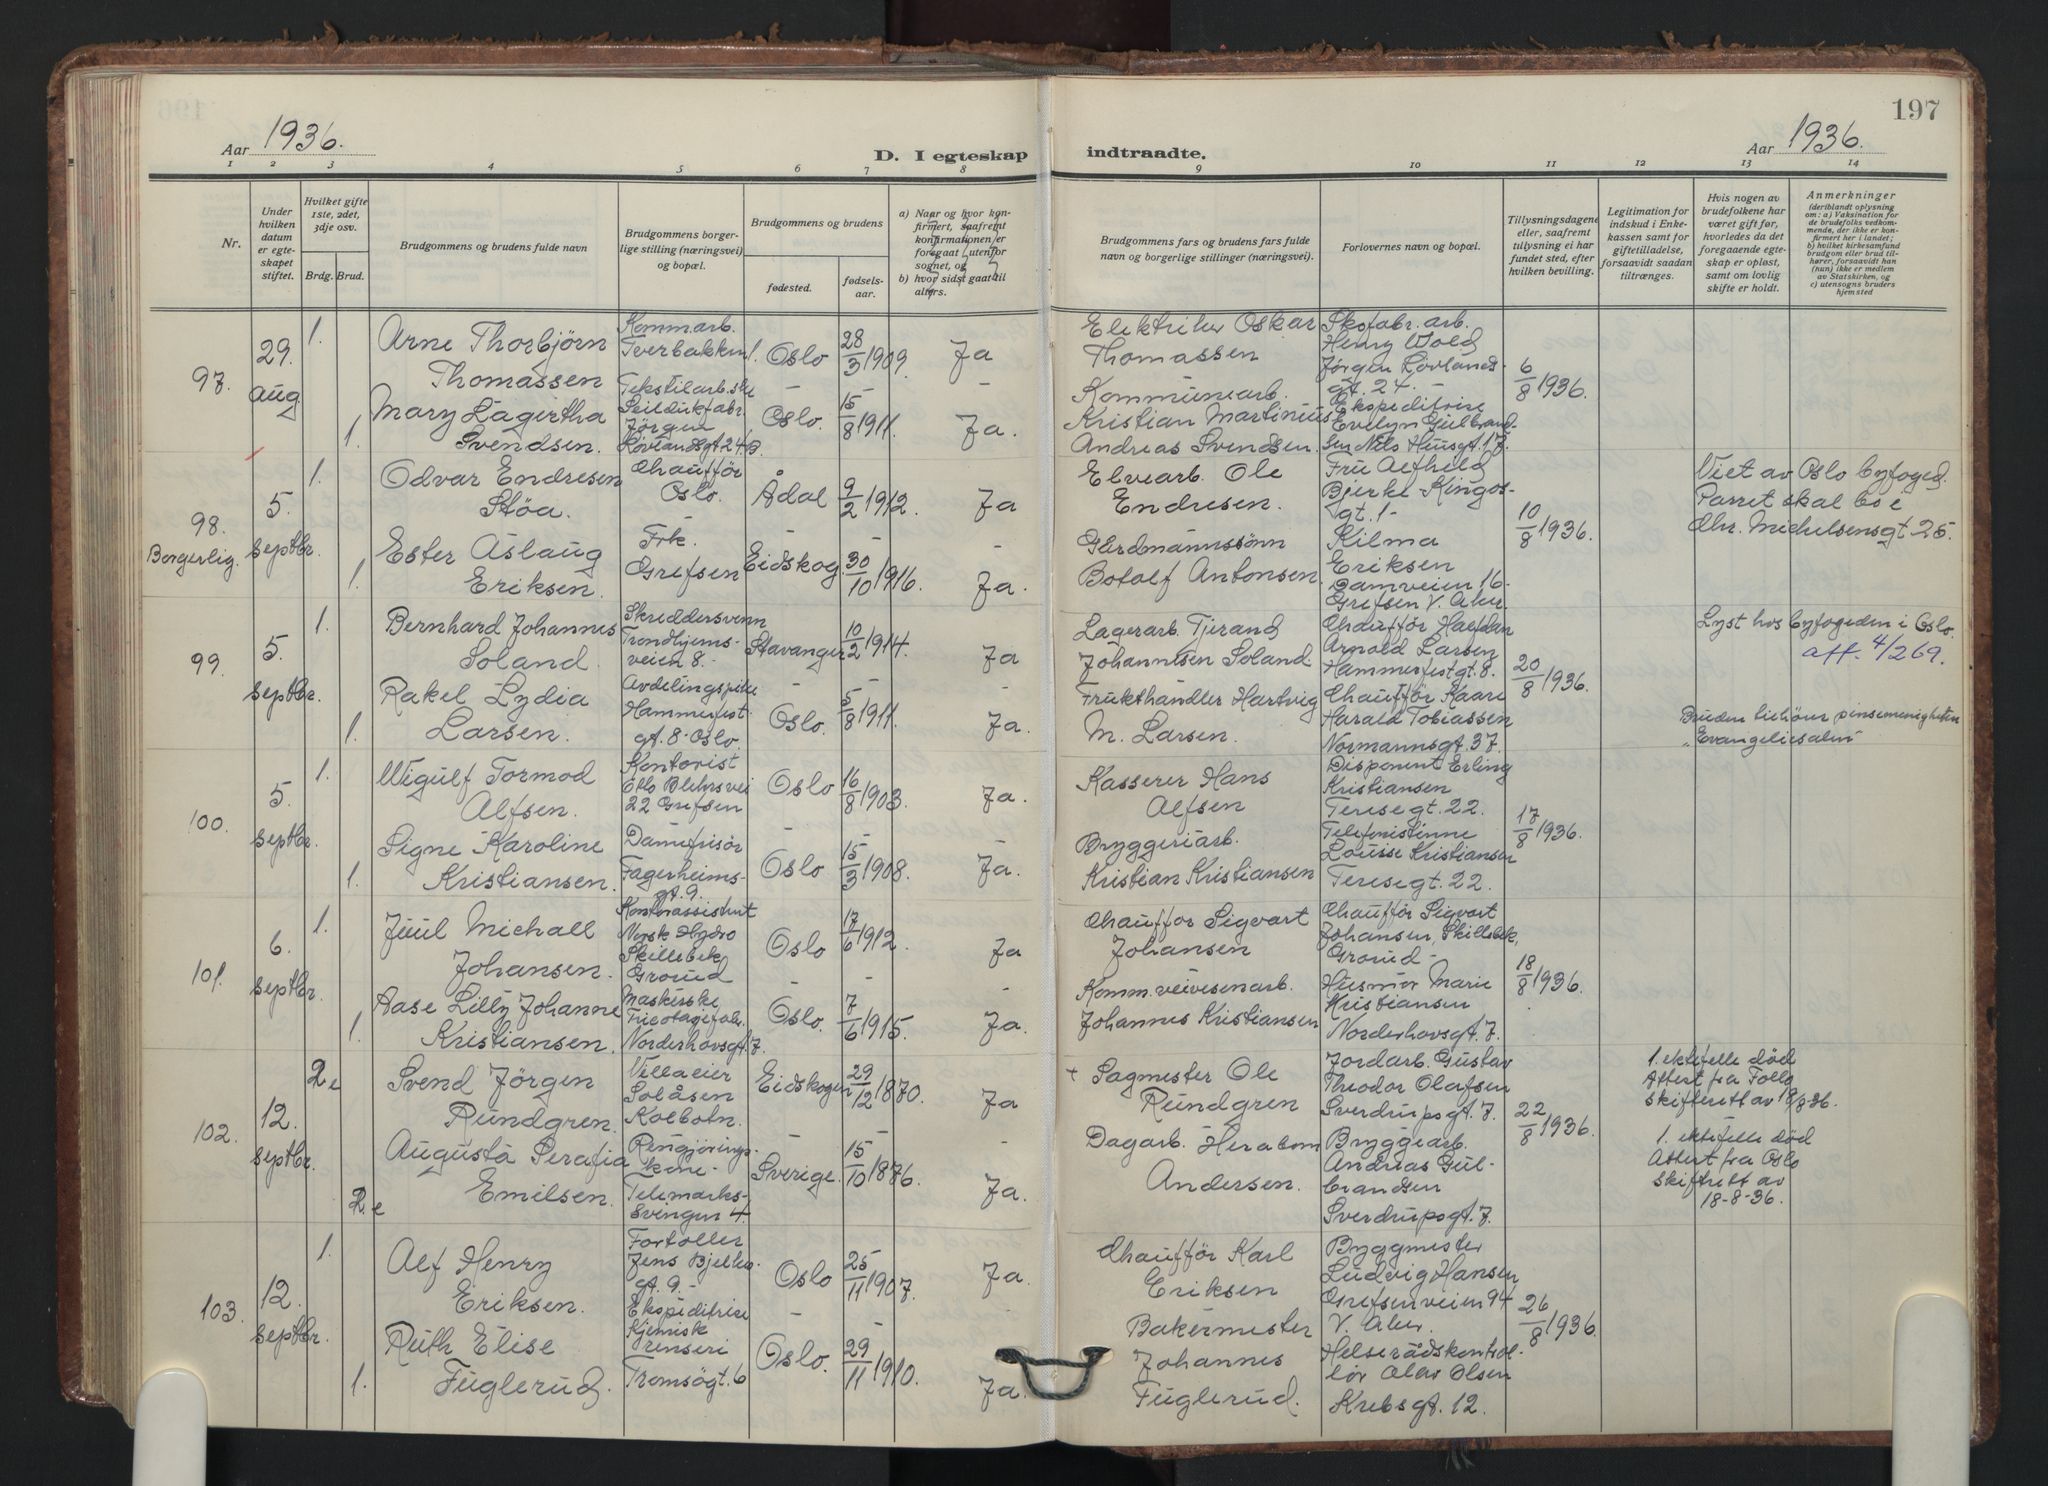 197
Aar 1936.
D. I egteskap
indtraadte.
Aar 1936.
1 2 3 4 5 6 7 8 9 10 11 12 13 14
Nr.
Under hvilken datum er egteskapet stiftet.
Hvilket gifte 1ste, 2det, 3dje osv.
Brdg. Brud.
Brudgommens og brudens fulde navn
Brudgommens borgerlige stilling (næringsvei) og bopæl.
Brudgommens og brudens
fødested.
fødselsaar.
a) Naar og hvor konfirmert, saafremt konfirmationen er foregaat utenfor sognet, og
b) hvor sidst gaat til alters.
Brudgommens fars og brudens fars fulde navn og borgerlige stillinger (næringsvei).
Forlovernes navn og bopæl.
Tillysningsdagene eller, saafremt tillysning ei har fundet sted, efter hvilken bevilling.
Legitimation for indskud i Enkekassen samt for giftetilladelse, forsaavidt saadan tiltrænges.
Hvis nogen av brudefolkene har været gift før, hvorledes da det foregaaende egteskap er opløst, samt om lovlig skifte er holdt.
Anmerkninger (deriblandt oplysning om: a) Vaksination for de brudefolks vedkommende, der ikke er konfirmert her i landet; b) hvilket kirkesamfund brudgom eller brud tilhører, forsaavidt han (hun) ikke er medlem av Statskirken, og c) utensogns bruders hjemsted
97.
29. aug
1.
Arne Thorbjørn
Thomassen
Kommarb.
Oslo
28/3 1909.
Ja
Thomassen
Skofabr. arb.
Henry Wold
Jørgen Løvlands-
gt. 24.
6/8 1936.
1.
Mary Lagertha
Svendsen.
Seildukfabr.
Jørgen
Løvlandsgt 24 B.
Oslo.
15/8 1911.
Ja.
Kommunearb.
Kristian Martinius
Andreas Svendsen.
Ekspeditrise
Evelyn Gulbrand-
sen Nils Huusgt. 17.
98.
Borgerlig.
5. septbr.
1.
Odvar Endresen
Støa.
Chauffør
Oslo.
Ådal
9/2 1912.
Ja
Elvearb. Ole
Endresen.
Fru Alfhild
Bjerke Kingos-
gt. 1-
10/8 1936.
Viet av Oslo byfoged.
Parret skal bo i
Chr. Michelsensgt 25.
1.
Ester Aslaug
Eriksen.
Frk.
Grefsen
Eidskog.
30/10 1916.
Ja.
Gårdmannssønn
Botolf Antonsen.
Kilma
Eriksen
Damveien 16-
Grefsen V. Aker.
99.
5. septbr.
1.
Bernhard Johannes
Soland.
Skreddersvenn
Trondhjems-
veien 8.-
Stavanger
10/2 1914.
Ja
Lagerarb. Tjerand
Johannesen Soland
Chauffør Halfdan
Arnold Larsen
Hammerfestgt. 8.
20/8 1936.
Lyst hos byfogeden i Oslo.
att. 4/269.
1.
Rakel Lydia
Larsen.
Avdelingspike
Hammerfest-
gt. 8-Oslo.
Oslo.
5/8 1911.
Ja.
Frukthandler Hartvig
M. Larsen.
Chauffør Kaare
Harald Tobiassen
Normannsgt. 37.
Bruden tilhører pinsemenigheten
"Evangeliesalen"
100.
5. septbr.
1.
Wigulf Tormod
Alfsen.
Kontorist
Otto Blehrsvei
22 Grefsen
Oslo
16/8 1903.
Ja.
Kasserer Hans
Alfsen
Disponent Erling
Kristiansen
Teresegt. 22.
17/8 1936.
1.
Signe Karoline
Kristiansen.
Damefrisør
Fagerheims-
gt. 9.
Oslo
15/3 1908.
Ja.
Bryggeriarb.
Kristian Kristiansen
Telefonistinne
Lousse Kristiansen
Teresegt. 22.
101.
6. septbr.
1.
Juul Michall
Johansen.
Kontorassistent
Norsk Hydro
Skillebek
Grorud
Oslo
17/6 1912.
Ja
Chauffør Sigvart
Johansen
Chauffør Sigvart
Johansen, Skillebek,
Grorud-
18/8 1936.
1.
Aase Lilly Johanne
Kristiansen.
Tricotagefabr.
Norderhovsgt. 7.
Oslo.
7/6 1915.
Ja.
Komm. veivesenarb.
Johannes Kristiansen
Husmor Marie
Kristiansen
Norderhovsgt. 7.
102.
12. septbr.
2e
Svend Jörgen
Rundgren.
Villaeier
Solåsen
Kolbotn.
Eidskogen
29/12 1870.
Ja
+ Sagmester Ole
Rundgren
Jordarb. Gustav
Theodor Olafsen
Sverdrupsgt. 7.
22/8 1936.
1. ektefelle død
Attest fra Follo
skifterett av 18/8-36.
2.e
Augusta Serafia
Emilsen.
Rengjørings-
kone-
Telemarks-
svingen 4.
Sverige.
15/10 1876.
Ja.
Dagarb.
Andersen.
Bryggearb.
Andreas Gul-
brandsen
Sverdrupsgt. 7.
1. ektefelle død
Attest fra Oslo
skifterett av
18-8-36.
103.
12. septbr.
1.
Alf Henry
Eriksen.
Fortoller
Jens Bjelkes-
gt. 9.-
Oslo
25/11 1907.
Ja.
Chauffør Karl
Eriksen
Byggmester
Ludvig Hansen
Grefsenveien 94
V. Aker.
26/8 1936.
1.
Ruth Elise
Fuglerud.
Ekspeditrise
Kjemisk
renseri
Tromsøgt. 6
Oslo.
29/11 1910.
Ja.
Bakermester
Johannes
Fuglerud.
Helserådskontrol-
lør Olav Olsen
Krebsgt. 12.